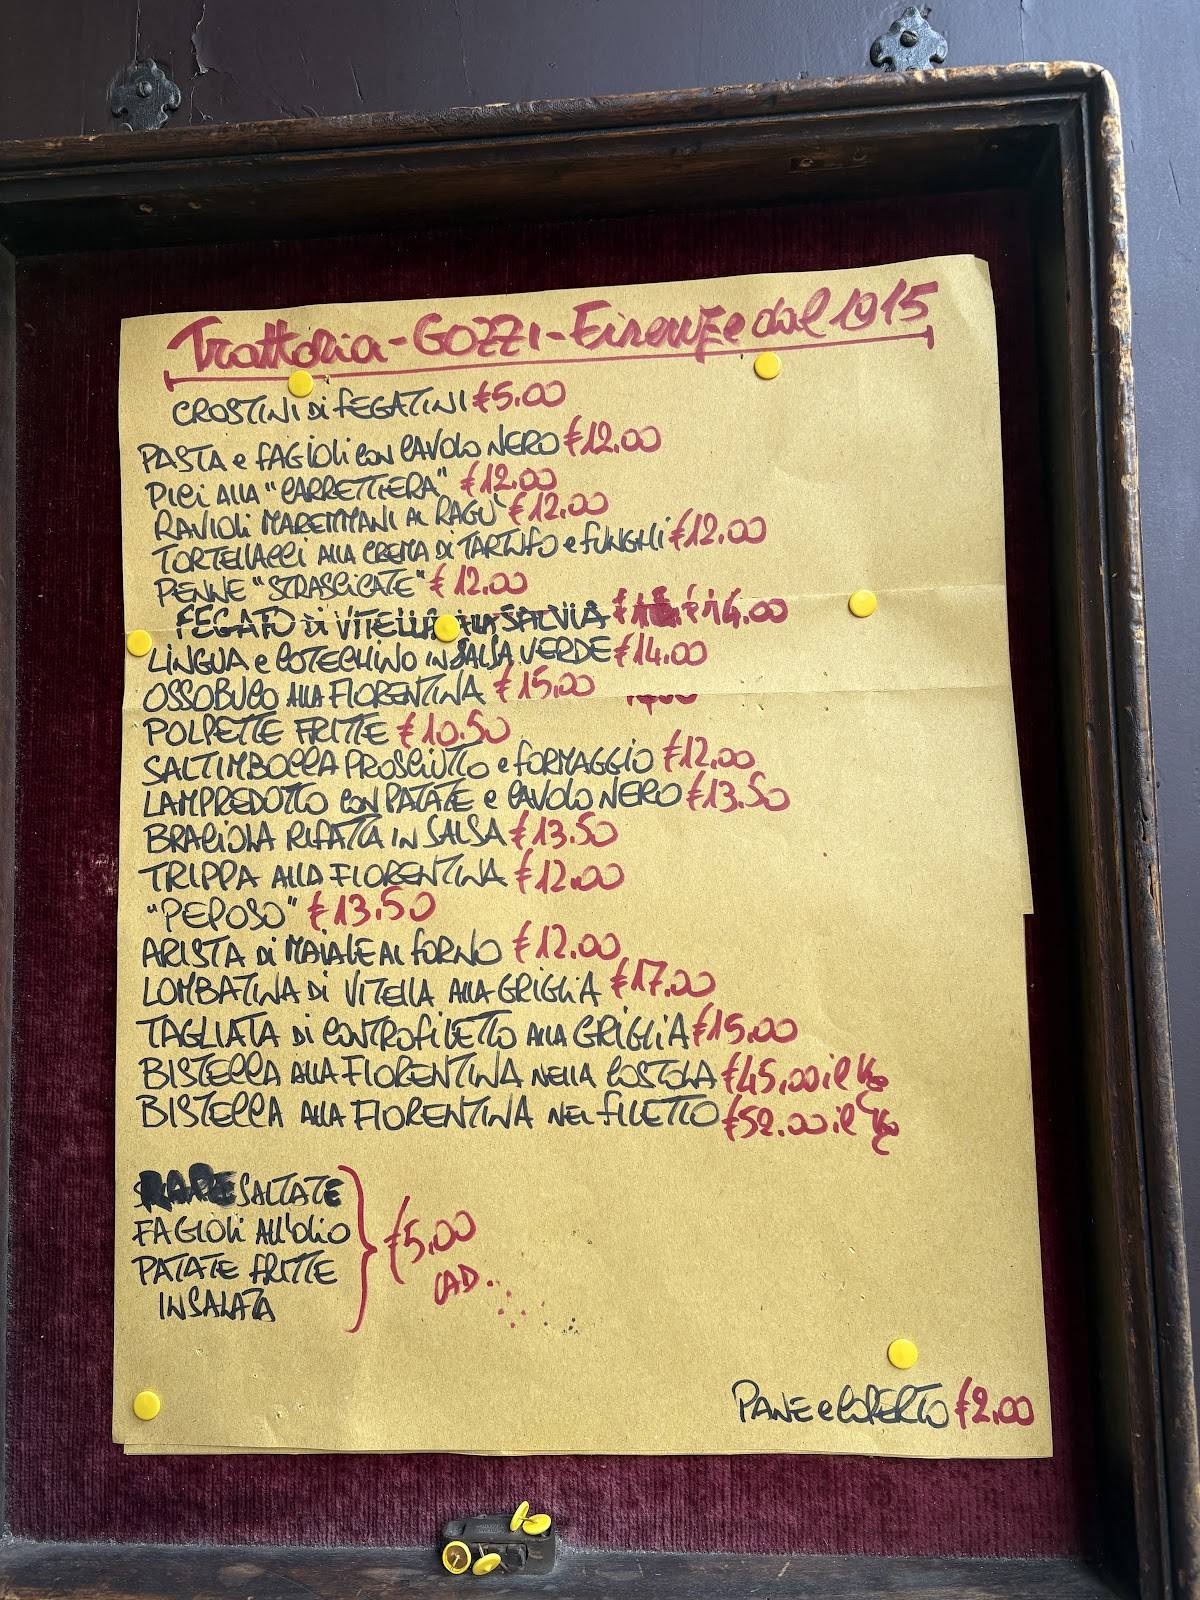 Trattoria - GOZZI - Firenze dal 1915
CROSTINI di FEGATINI €5.00
PASTA e FAGIOLI con CAVOLO NERO €12.00
PICI ALLA "CARRETTIERA" €12.00
RAVIOLI MAREMMANI AL RAGU' €12.00
TORTELLACCI ALLA CREMA DI TARTUFO e FUNGHI €12.00
PENNE "STRASCICATE" €12.00
FEGATO di VITELLA ALLA SALVIA € 14.00
LINGUA e COTECHINO IN SALSA VERDE €14.00
OSSOBUCO ALLA FIORENTINA €15,00
POLPETTE FRITTE €10.50
SALTIMBOCCA PROSCIUTTO e FORMAGGIO €12.00
LAMPREDOTTO con PATATE e CAVOLO NERO €13.50
BRACIOLA RIFATTA IN SALSA €13.50
TRIPPA ALLA FIORENTINA €12.00
"PEPOSO" €13.50
ARISTA di MAIALE AL FORNO €12.00
LOMBATINA DI VITELLA ALLA GRIGLIA €17.00
TAGLIATA di CONTROFILETTO ALLA GRIGLIA €15.00
BISTECCA ALLA FIORENTINA NELLA COSTOLA €45,00 il Kg
BISTECCA ALLA FIORENTINA NEL FILETTO €52.00 il Kg
RAPE SALTATE
FAGIOLI ALL'OLIO
PATATE FRITTE
INSALATA
€5,00
CAD.
PANE e COPERTO €2.00